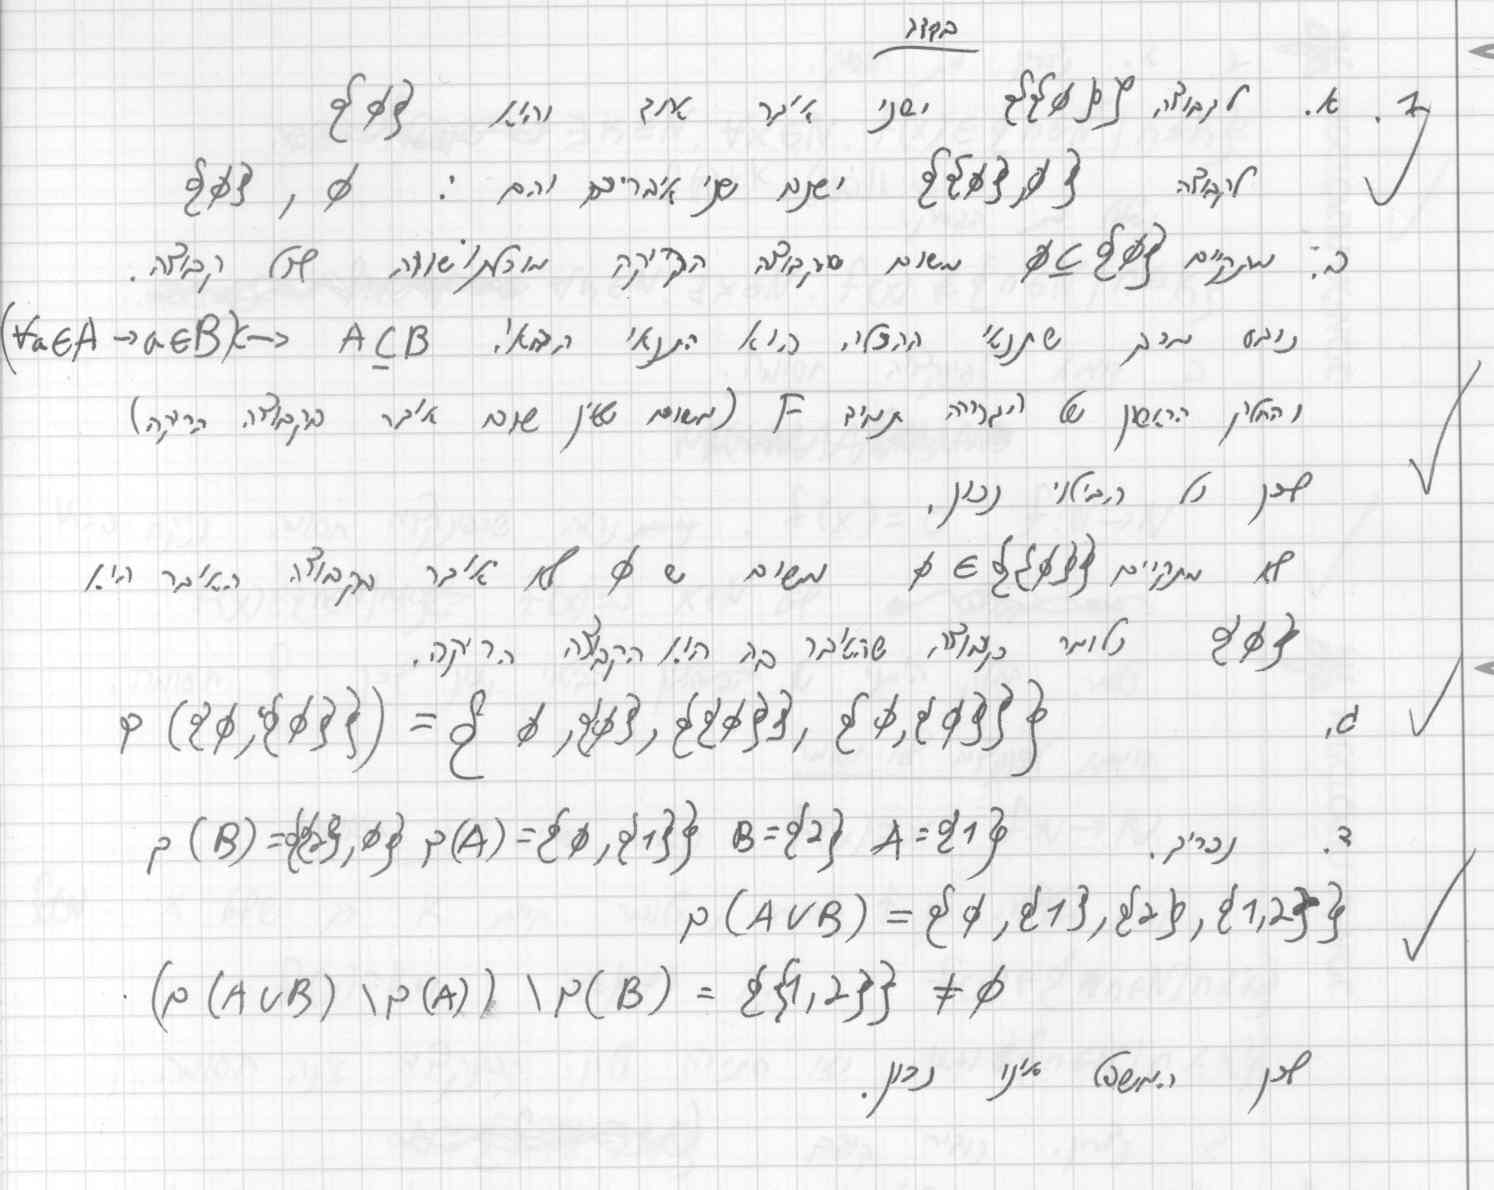 בקדג
1. א. לקבוצה {{∅}} ישנו איבר אחד והוא {∅}
לקבוצה {{∅},∅} ישנם שני איברים והם : ∅ , {∅}
ב. מתקיים ∅⊆{∅} משום שקבוצה הריקה מוכלת/שווה לכל קבוצה.
נובע מכך שתנאי ההכלה הוא התנאי הבא: A⊆B <-> (∀a∈A→a∈B)
והחלק הראשון של הגרירה תמיד F (משום שאין שום איבר בקבוצה הריקה)
לכן כל הביטוי נכון.
לא מתקיים ∅∈{{∅}} משום ש ∅ לא איבר בקבוצה האיבר היא
{∅} כלומר קבוצה שהאיבר בה היא הקבוצה הריקה.
ג. P({∅,{∅}}) = { ∅,{∅},{{∅}}, {∅,{∅}}}
ד. נפריך. A={1} B={2} P(A)={∅,{1}} P(B)={{2},∅}
P(A∪B)={∅,{1},{2},{1,2}}
(P(A∪B)\P(A))\P(B)={{1,2}}≠∅.
לכן המשפט אינו נכון.